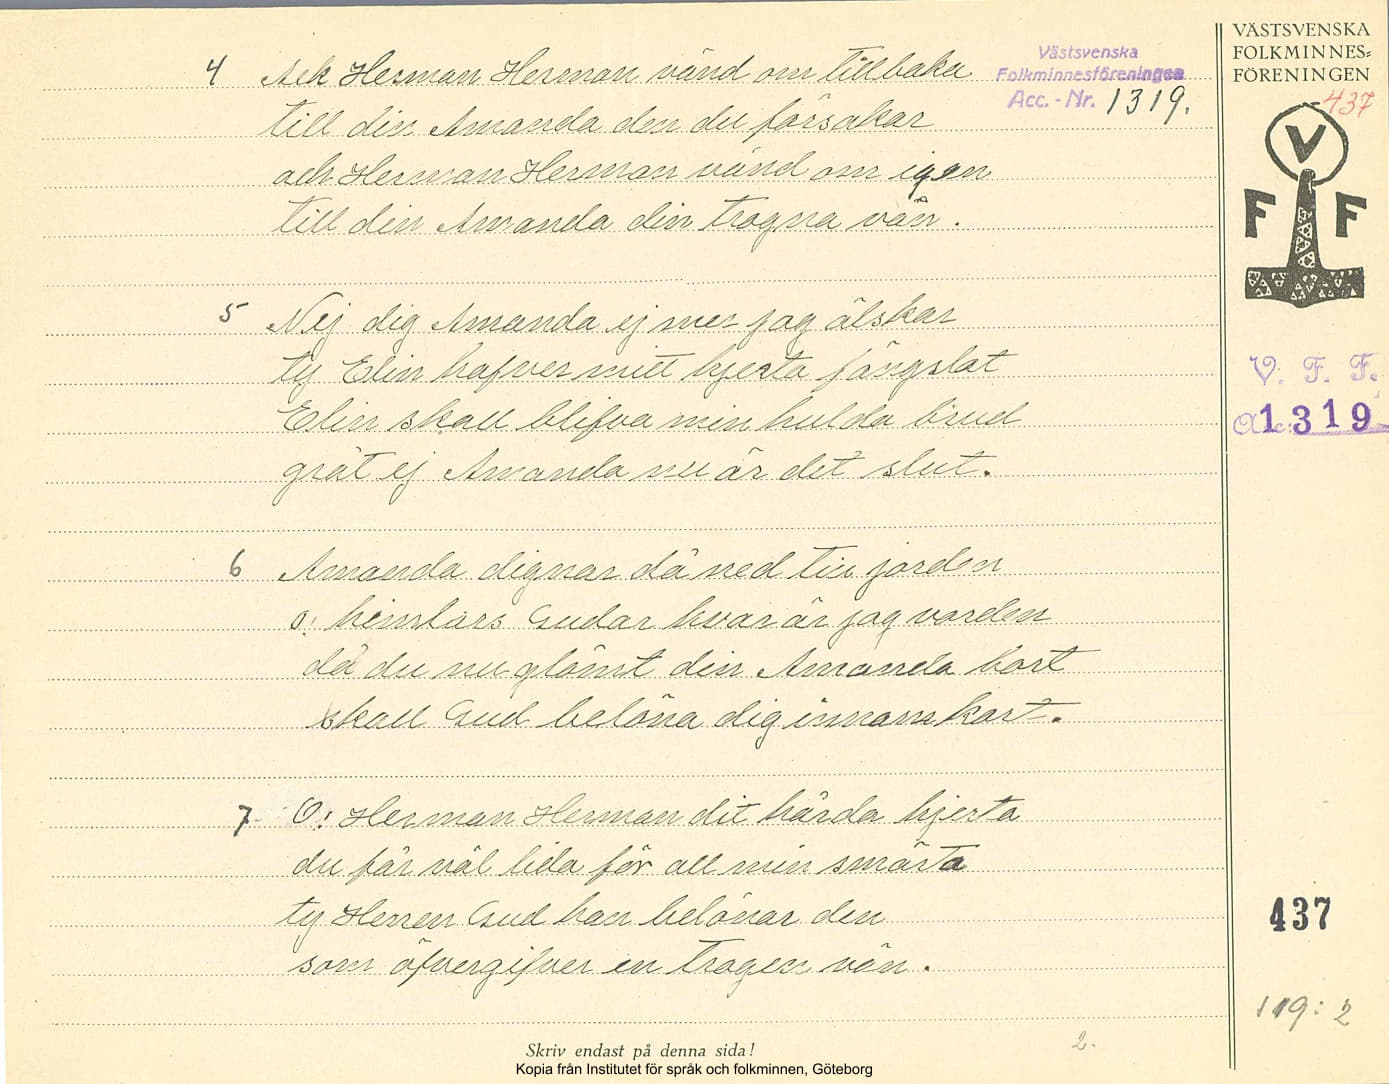 4 Ack Herman Herman vänd om tillbaka
till din Amanda den du försakar
ach Herman Herman vänd om igen
till din Amanda din trogna vän.
5 Nej dig Amanda ej mer jag älskar
ty Elin hafver mitt hjerta fängslat
Elin skall blifva min hulda brud
gråt ej Amanda nu är det slut.
6 Amanda dignar då ned till jorden
o! himlars Gudar hvar är jag vorden
då du nu glömt din Amanda bort
skall Gud belöna dig innom kort.
7 O! Herman Herman dit hårda hjerta
du får väl lida för all min smärta
ty Herren Gud han belönar den
som öfvergifver en trogen vän.
Västsvenska
Folkminnesföreningen
Acc. - Nr. 1319.
VÄSTSVENSKA
FOLKMINNES=
FÖRENINGEN
437
V
F F
V. F. F.
1319
437
119: 2
2.
Skriv endast på denna sida!
Kopia från Institutet för språk och folkminnen, Göteborg